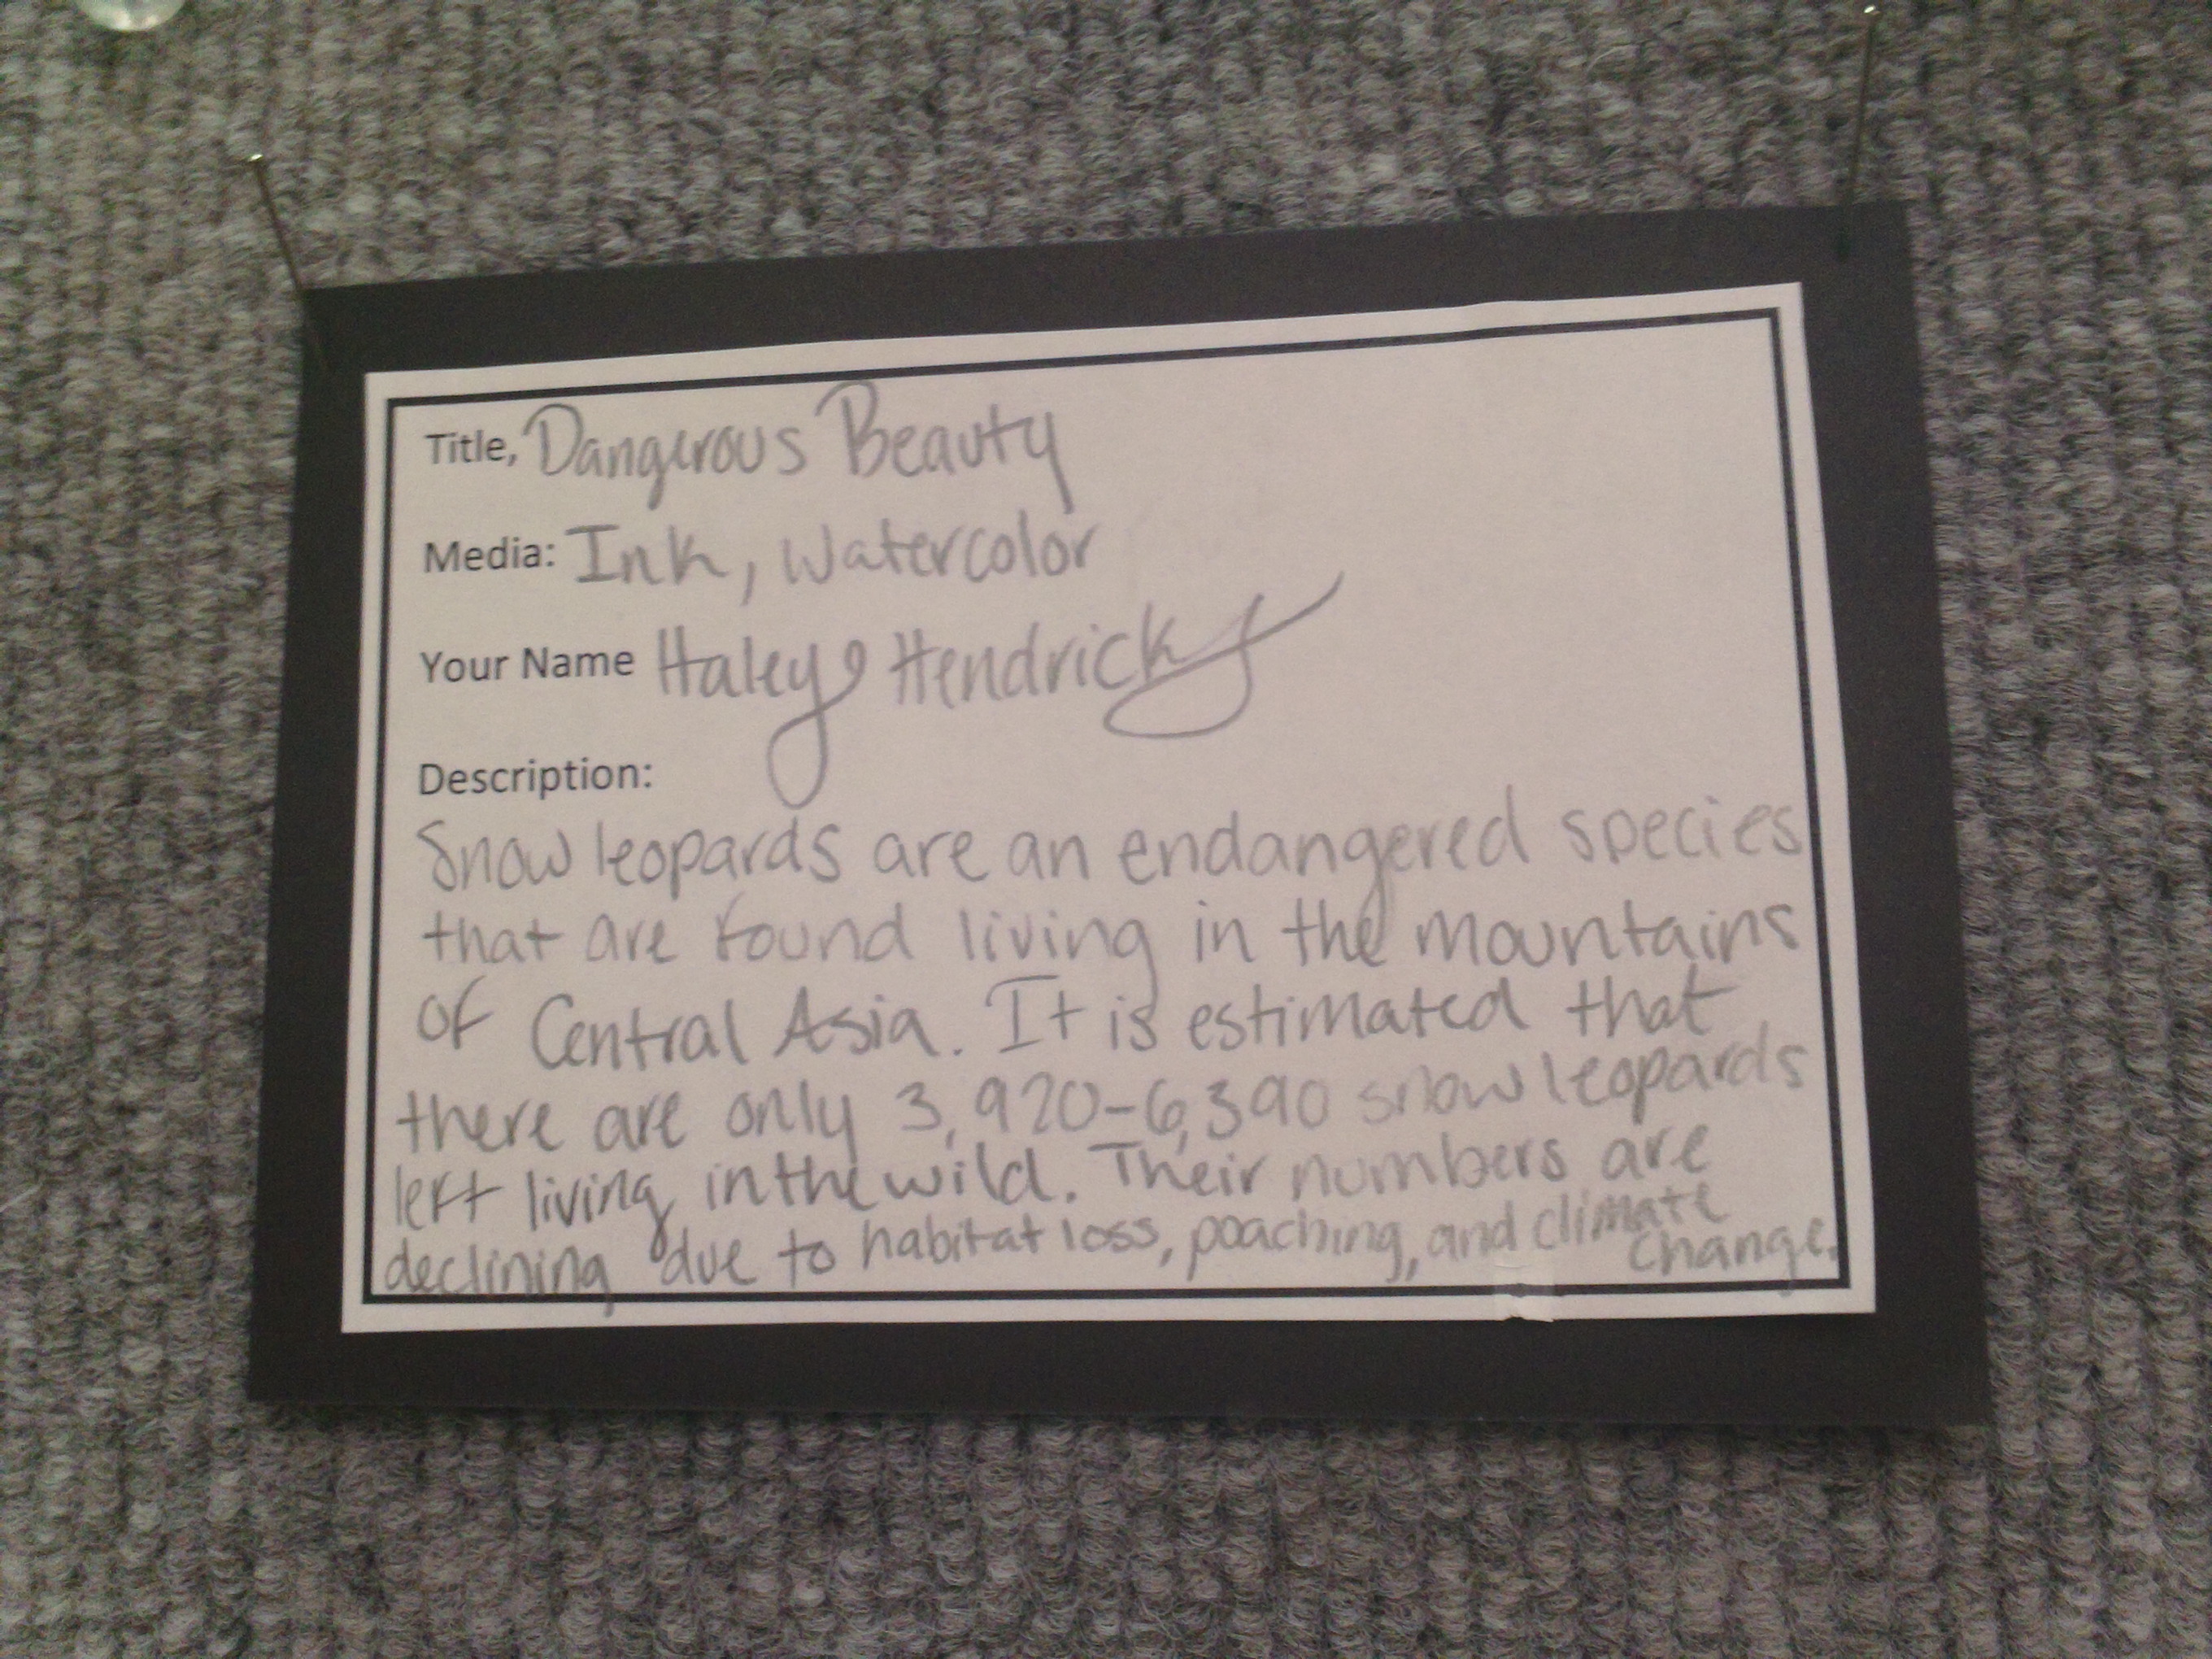 Title, Dangerous Beauty
Media: Ink, Watercolor
Your Name Haley Hendricks
Description:
Snow leopards are an endangered species
that are found living in the mountains
of Central Asia. It is estimated that
there are only 3,920-6,390 snow leopards
left living in the wild. Their numbers are
declining due to habitat loss, poaching, and climate
change.